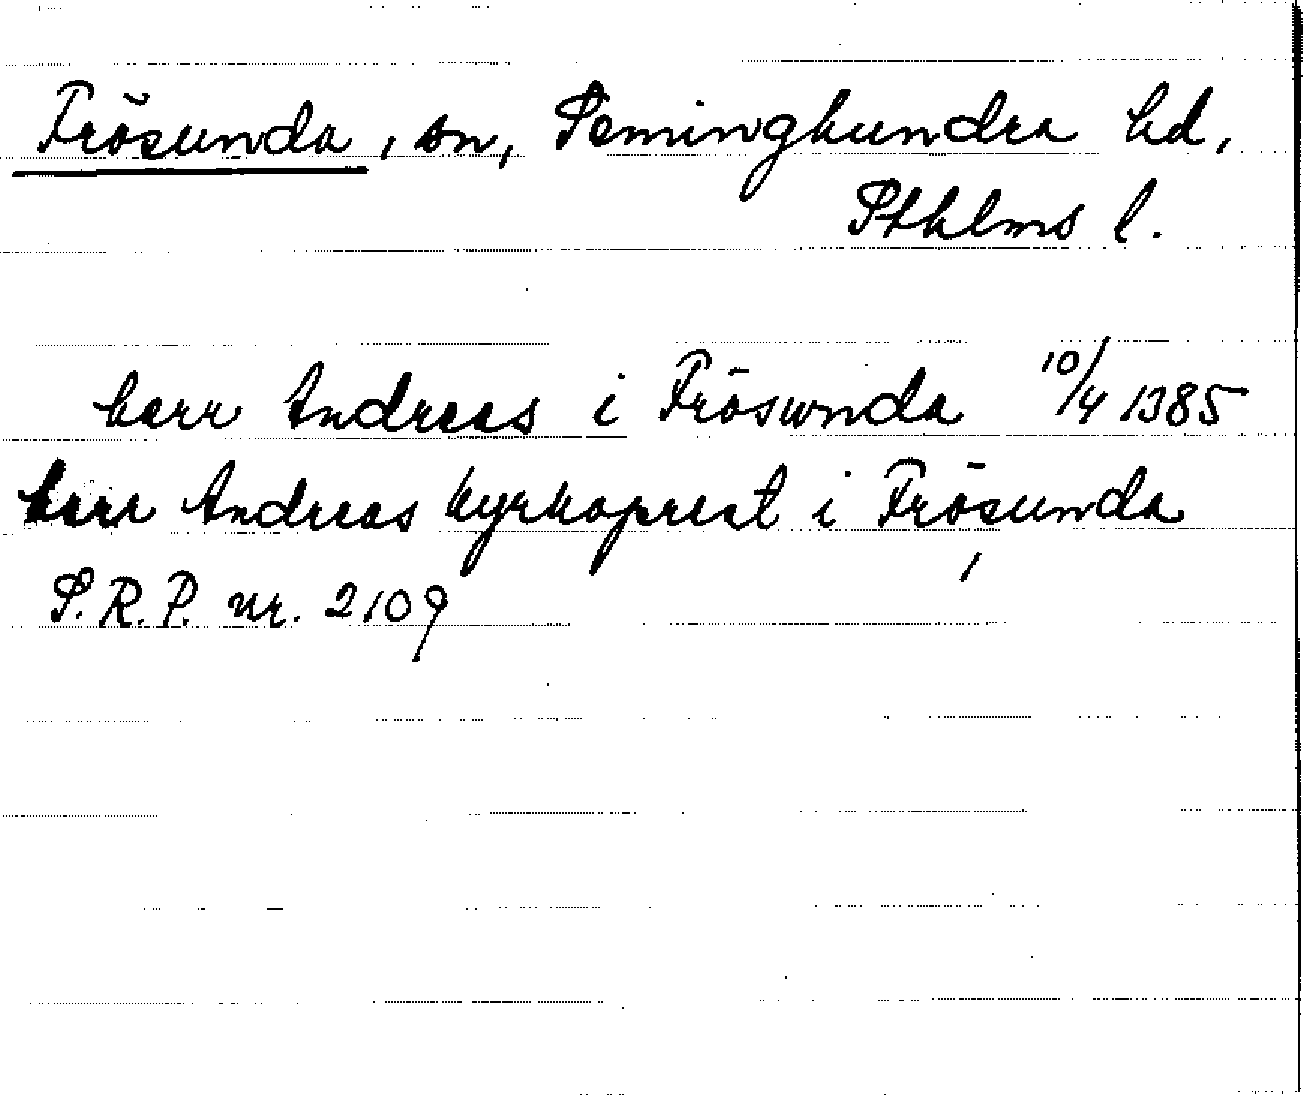 Frösunda, sn, Seminghundra hd,
Sthlms l.
herr Andreas i Frösunda 10/4 1385
herr Andreas kyrkoprest i Frösunda
S.R.P. nr. 2109